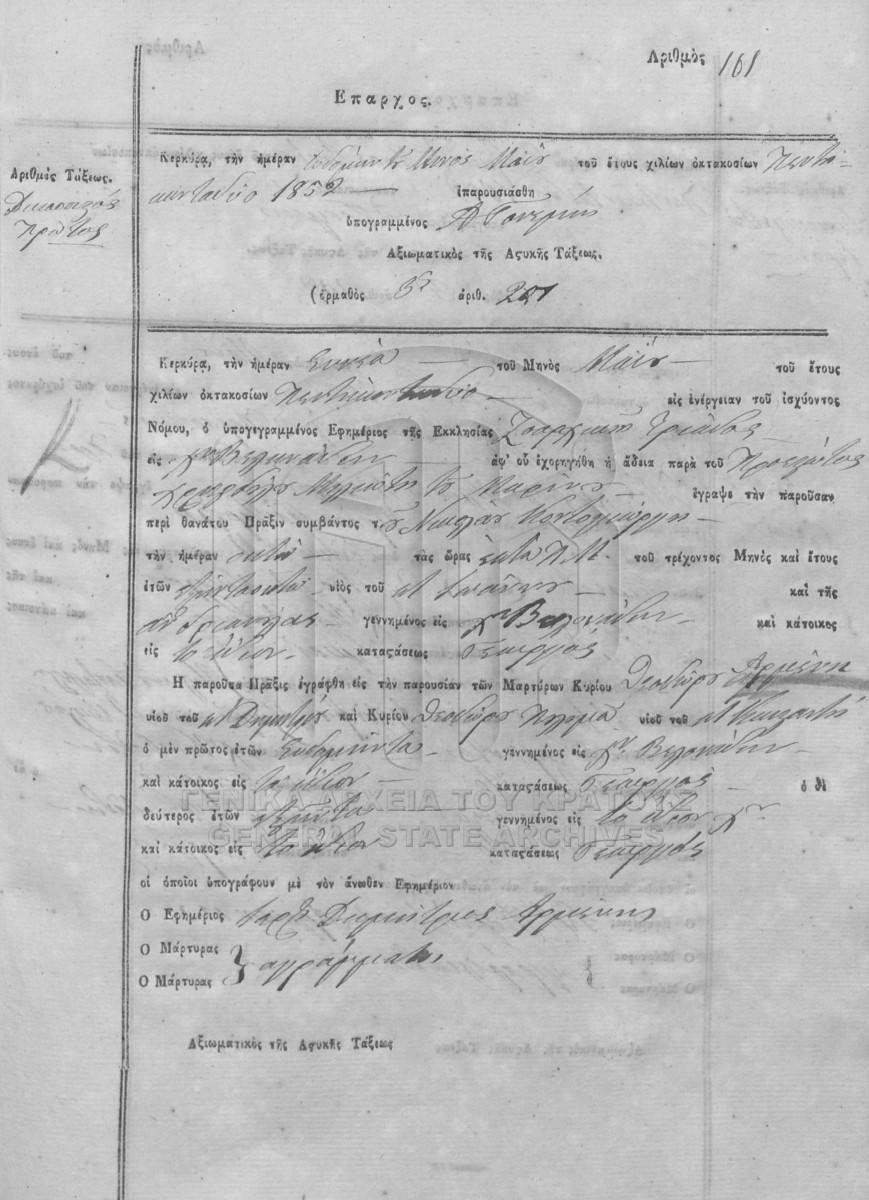 Αριθμὸς 161
Επαρχος.
Αριθμὸς Τάξεως.
Πρῶτος
Κερκύρα, τὴν ἡμέραν Μηνὸς Μαΐου τοῦ ἔτους χιλίων ὀκτακοσίων Πεντη-
κονταδύο 1852 — ἐπαρουσιάσθη
ὑπογραμμένος
Αξιωματικὸς τῆς Αςυκῆς Τάξεως.
(ὁρμαθὸς ἀριθ. 201
Κερκύρα, τὴν ἡμέραν Ἐννέα — τοῦ Μηνὸς Μαΐου — τοῦ ἔτους
χιλίων ὀκτακοσίων Πεντήκοντα δύο — εἰς ἐνέργειαν τοῦ ἰσχύοντος
Νόμου, ὁ ὑπογεγραμμένος Εφημέριος τῆς Εκκλησίας
εἰς ἀφ' οὗ ἐχορηγήθη ἡ ἄδεια παρὰ τοῦ Προεστῶτος
ἔγραψε τὴν παροῦσαν
περὶ θανάτου Πρᾶξιν συμβάντος τοῦ Νικολάου
τὴν ἡμέραν ὀκτὼ — τὰς ὥρας ἑπτὰ Π.Μ. τοῦ τρέχοντος Μηνὸς καὶ ἔτους
ἐτῶν υἱὸς τοῦ Ἰωάννου — καὶ τῆς
γεννημένος εἰς χν Βελονάδων — καὶ κάτοικος
εἰς τὸ ἴδιον — καταςάσεως Γεωργὸς
Η παροῦσα Πρᾶξις ἐγράφθη εἰς τὴν παρουσίαν τῶν Μαρτύρων Κυρίου Θεοδώρου Ἀρμένη
υἱοῦ τοῦ Δημητρίου καὶ Κυρίου Θεοδώρου υἱοῦ τοῦ
ὁ μὲν πρῶτος ἐτῶν Ἑβδομήντα — γεννημένος εἰς χν. Βελονάδων —
καὶ κάτοικος εἰς τὸ ἴδιον — καταςάσεως Γεωργὸς ὁ δὲ
δεύτερος ἐτῶν ἑξῆντα γεννημένος εἰς τὸ ἴδιον χν
καὶ κάτοικος εἰς τὸ ἴδιον καταςάσεως Γεωργὸς
οἱ ὁποῖοι ὑπογράφουν μὲ τὸν ἄνωθεν Εφημέριον
Ο Εφημέριος Δημήτριος Ἀρμένης
Ο Μάρτυρας } ἀγράμματοι
Ο Μάρτυρας
Αξιωματικὸς τῆς Αςυκῆς Τάξεως
ΓΕΝΙΚΑ ΑΡΧΕΙΑ ΤΟΥ ΚΡΑΤΟΥΣ
GENERAL STATE ARCHIVES